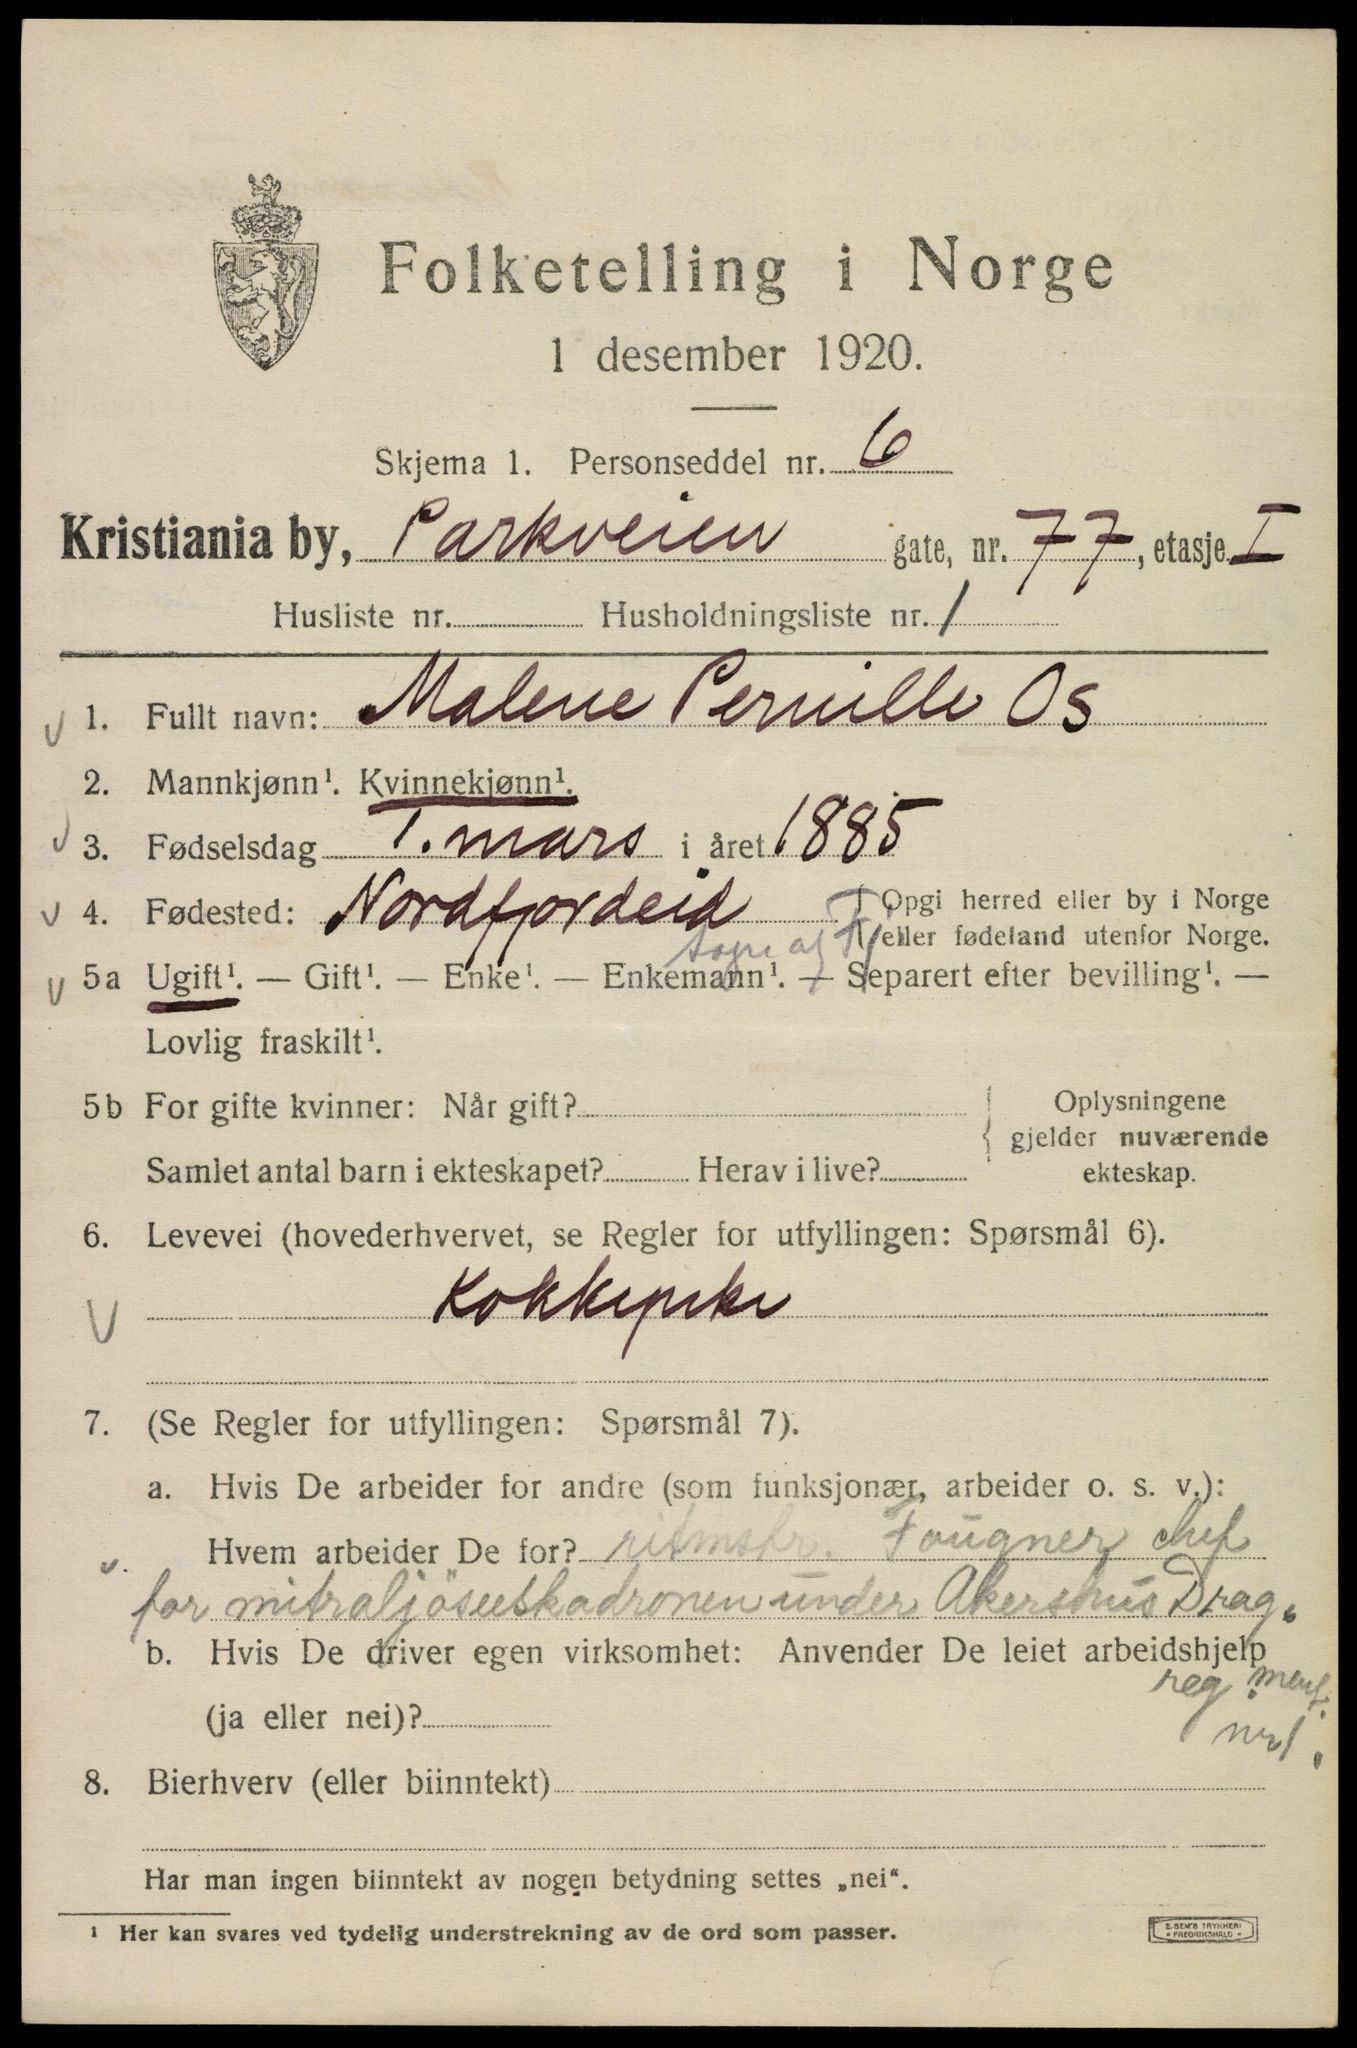 Folketelling i Norge
1 desember 1920.
Skjema 1. Personseddel nr. 6
Kristiania by, Parkveien gate, nr. 77, etasje I
Husliste nr. Husholdningsliste nr. 1
1. Fullt navn: Malene Pernille Os
2. Mannkjønn¹. Kvinnekjønn¹.
3. Fødselsdag 1. mars i året 1885
4. Fødested: Nordfjordeid { Opgi herred eller by i Norge
eller fødeland utenfor Norge.
Sogn og Fj.
5a Ugift¹. — Gift¹. — Enke¹. — Enkemann¹. — Separert efter bevilling¹. —
Lovlig fraskilt¹.
5b For gifte kvinner: Når gift? { Oplysningene
gjelder nuværende
Samlet antal barn i ekteskapet? Herav i live? ekteskap.
6. Levevei (hovederhvervet, se Regler for utfyllingen: Spørsmål 6).
Kokkepike
7. (Se Regler for utfyllingen: Spørsmål 7).
a. Hvis De arbeider for andre (som funksjonær, arbeider o. s. v.):
Hvem arbeider De for? ritmstr. Fougner, chef
for mitraljöseeskadronen under Akershus Drag.
b. Hvis De driver egen virksomhet: Anvender De leiet arbeidshjelp
reg.ment.
(ja eller nei)? nr 1.
8. Bierhverv (eller biinntekt)
Har man ingen biinntekt av nogen betydning settes „nei“.
¹ Her kan svares ved tydelig understrekning av de ord som passer.
E. SEM'S TRYKKERI
FREDRIKSHALD